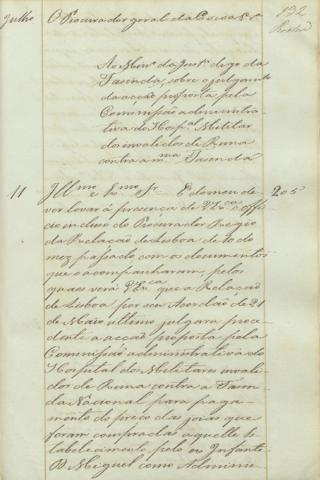 132
Julho O Procurador geral da Coroa &ª
Ao Minº da Justª digo da
Fasenda, sobre o julgamtº
da acção proposta pela
Commissão administra-
tiva do Hospal Militar
dos invalidos de Runa
contra a mma Fasenda
11 Illmo e Exmo Sr É do meu de- 205
ver levar á presença de V. Exca o offiº
incluso do Procurador Regio
da Relação de Lisboa de 10 do
mez passado com os documentos
que o acompanharam, pelos
quaes verá V. Exca que a Relação
de Lisboa por seu Accordão de 21
de Maio ultimo julgara proce-
dente a acção proposta pela
Commissão administrativa do
Hospital dos Militares invali-
dos de Runa contra a Fasen-
da Nacional para paga-
mento do preço das joias que
foram compradas a aquelle Es-
tabelecimento pelo ex Infante
D. Miguel como Adminis-